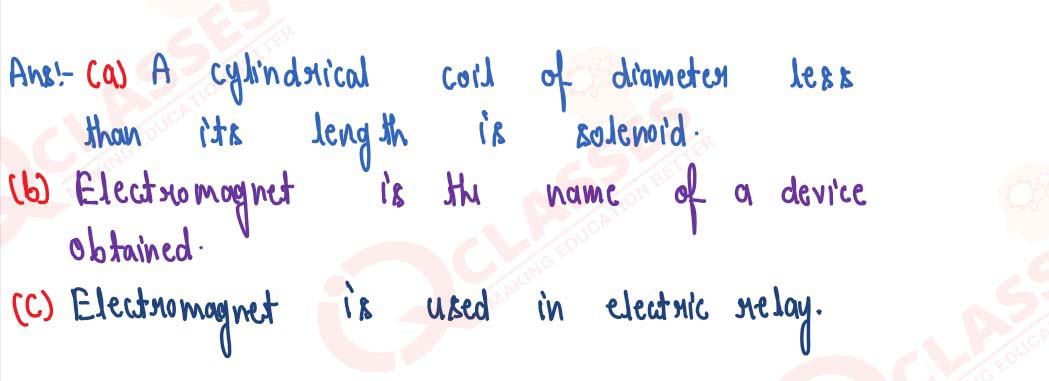 Ans:- (a) A cylindrical coil of diameter less
than its length is solenoid.
(b) Electromagnet is the name of a device
obtained.
(c) Electromagnet is used in electric relay.
CLASSES
MAKING EDUCATION BETTER
CLASSES
MAKING EDUCATION BETTER